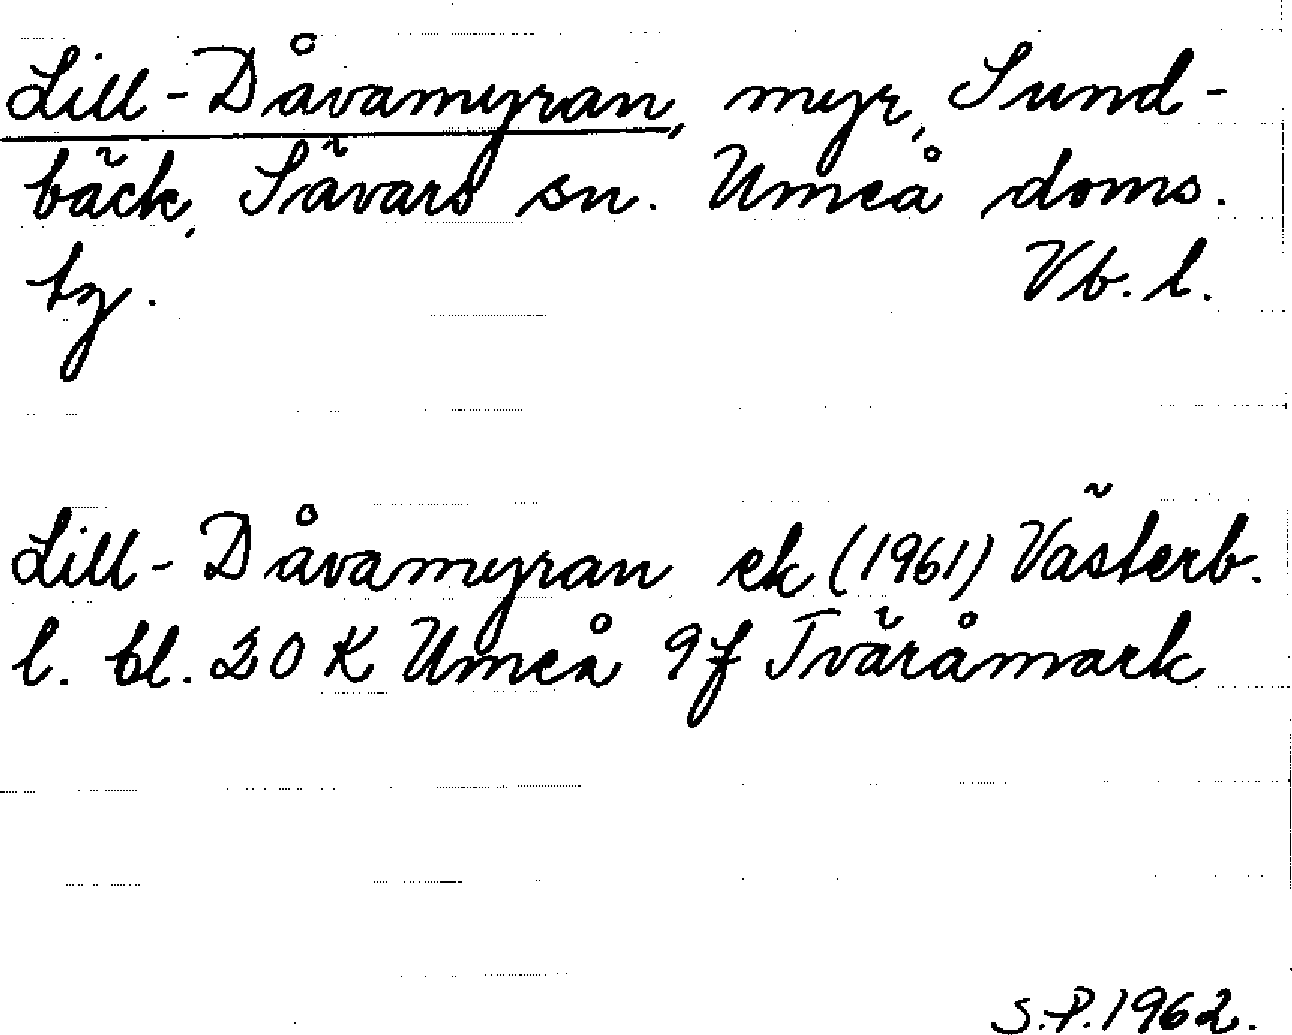 Lill-Dåvamyran, myr, Sund-
bäck, Sävars sn. Umeå doms.
tg. Vb. l.
Lill-Dåvamyran ek (1961) Västerb.
l. bl. 20 K Umeå 9f Tväråmark
S.P. 1962.